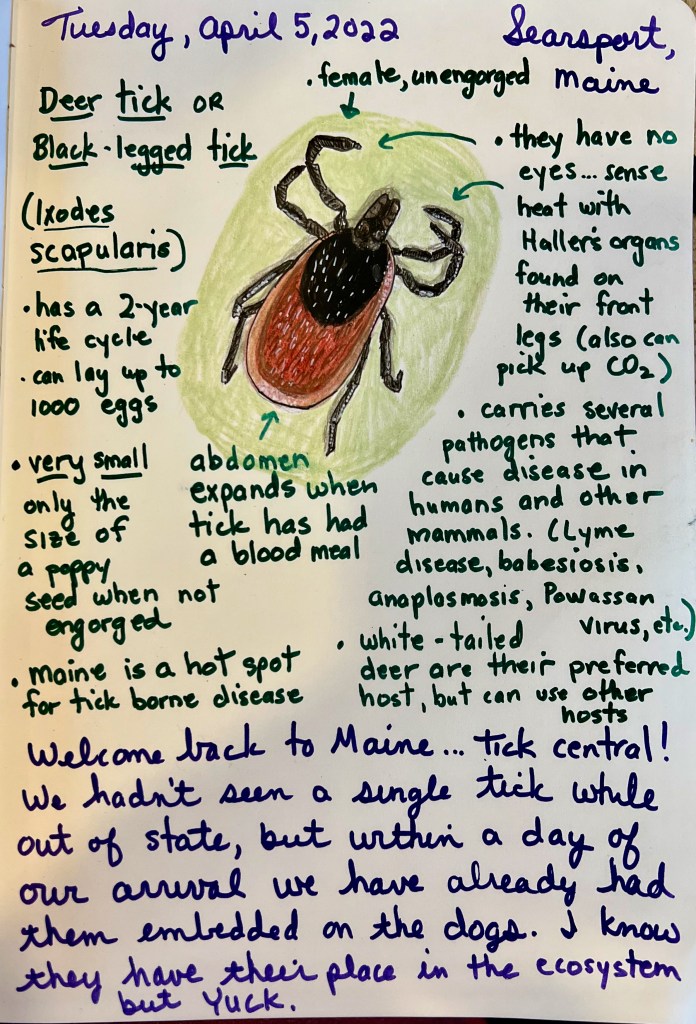 Tuesday, April 5, 2022
Searsport, Maine
Deer tick OR
Black-legged tick
(Ixodes
scapularis)
• has a 2-year
life cycle
• can lay up to
1000 eggs
• very small
only the
size of
a poppy
seed when not
engorged
• Maine is a hot spot
for tick borne disease
• female, unengorged
abdomen
expands when
tick has had
a blood meal
• they have no
eyes... sense
heat with
Haller's organs
found on
their front
legs (also can
pick up CO2)
• carries several
pathogens that
cause disease in
humans and other
mammals. (Lyme
disease, babesiosis,
anaplasmosis, Powassan
virus, etc.)
• white-tailed
deer are their preferred
host, but can use other
hosts
Welcome back to Maine... tick central!
We hadn't seen a single tick while
out of state, but within a day of
our arrival we have already had
them embedded on the dogs. I know
they have their place in the ecosystem
but YUCK.